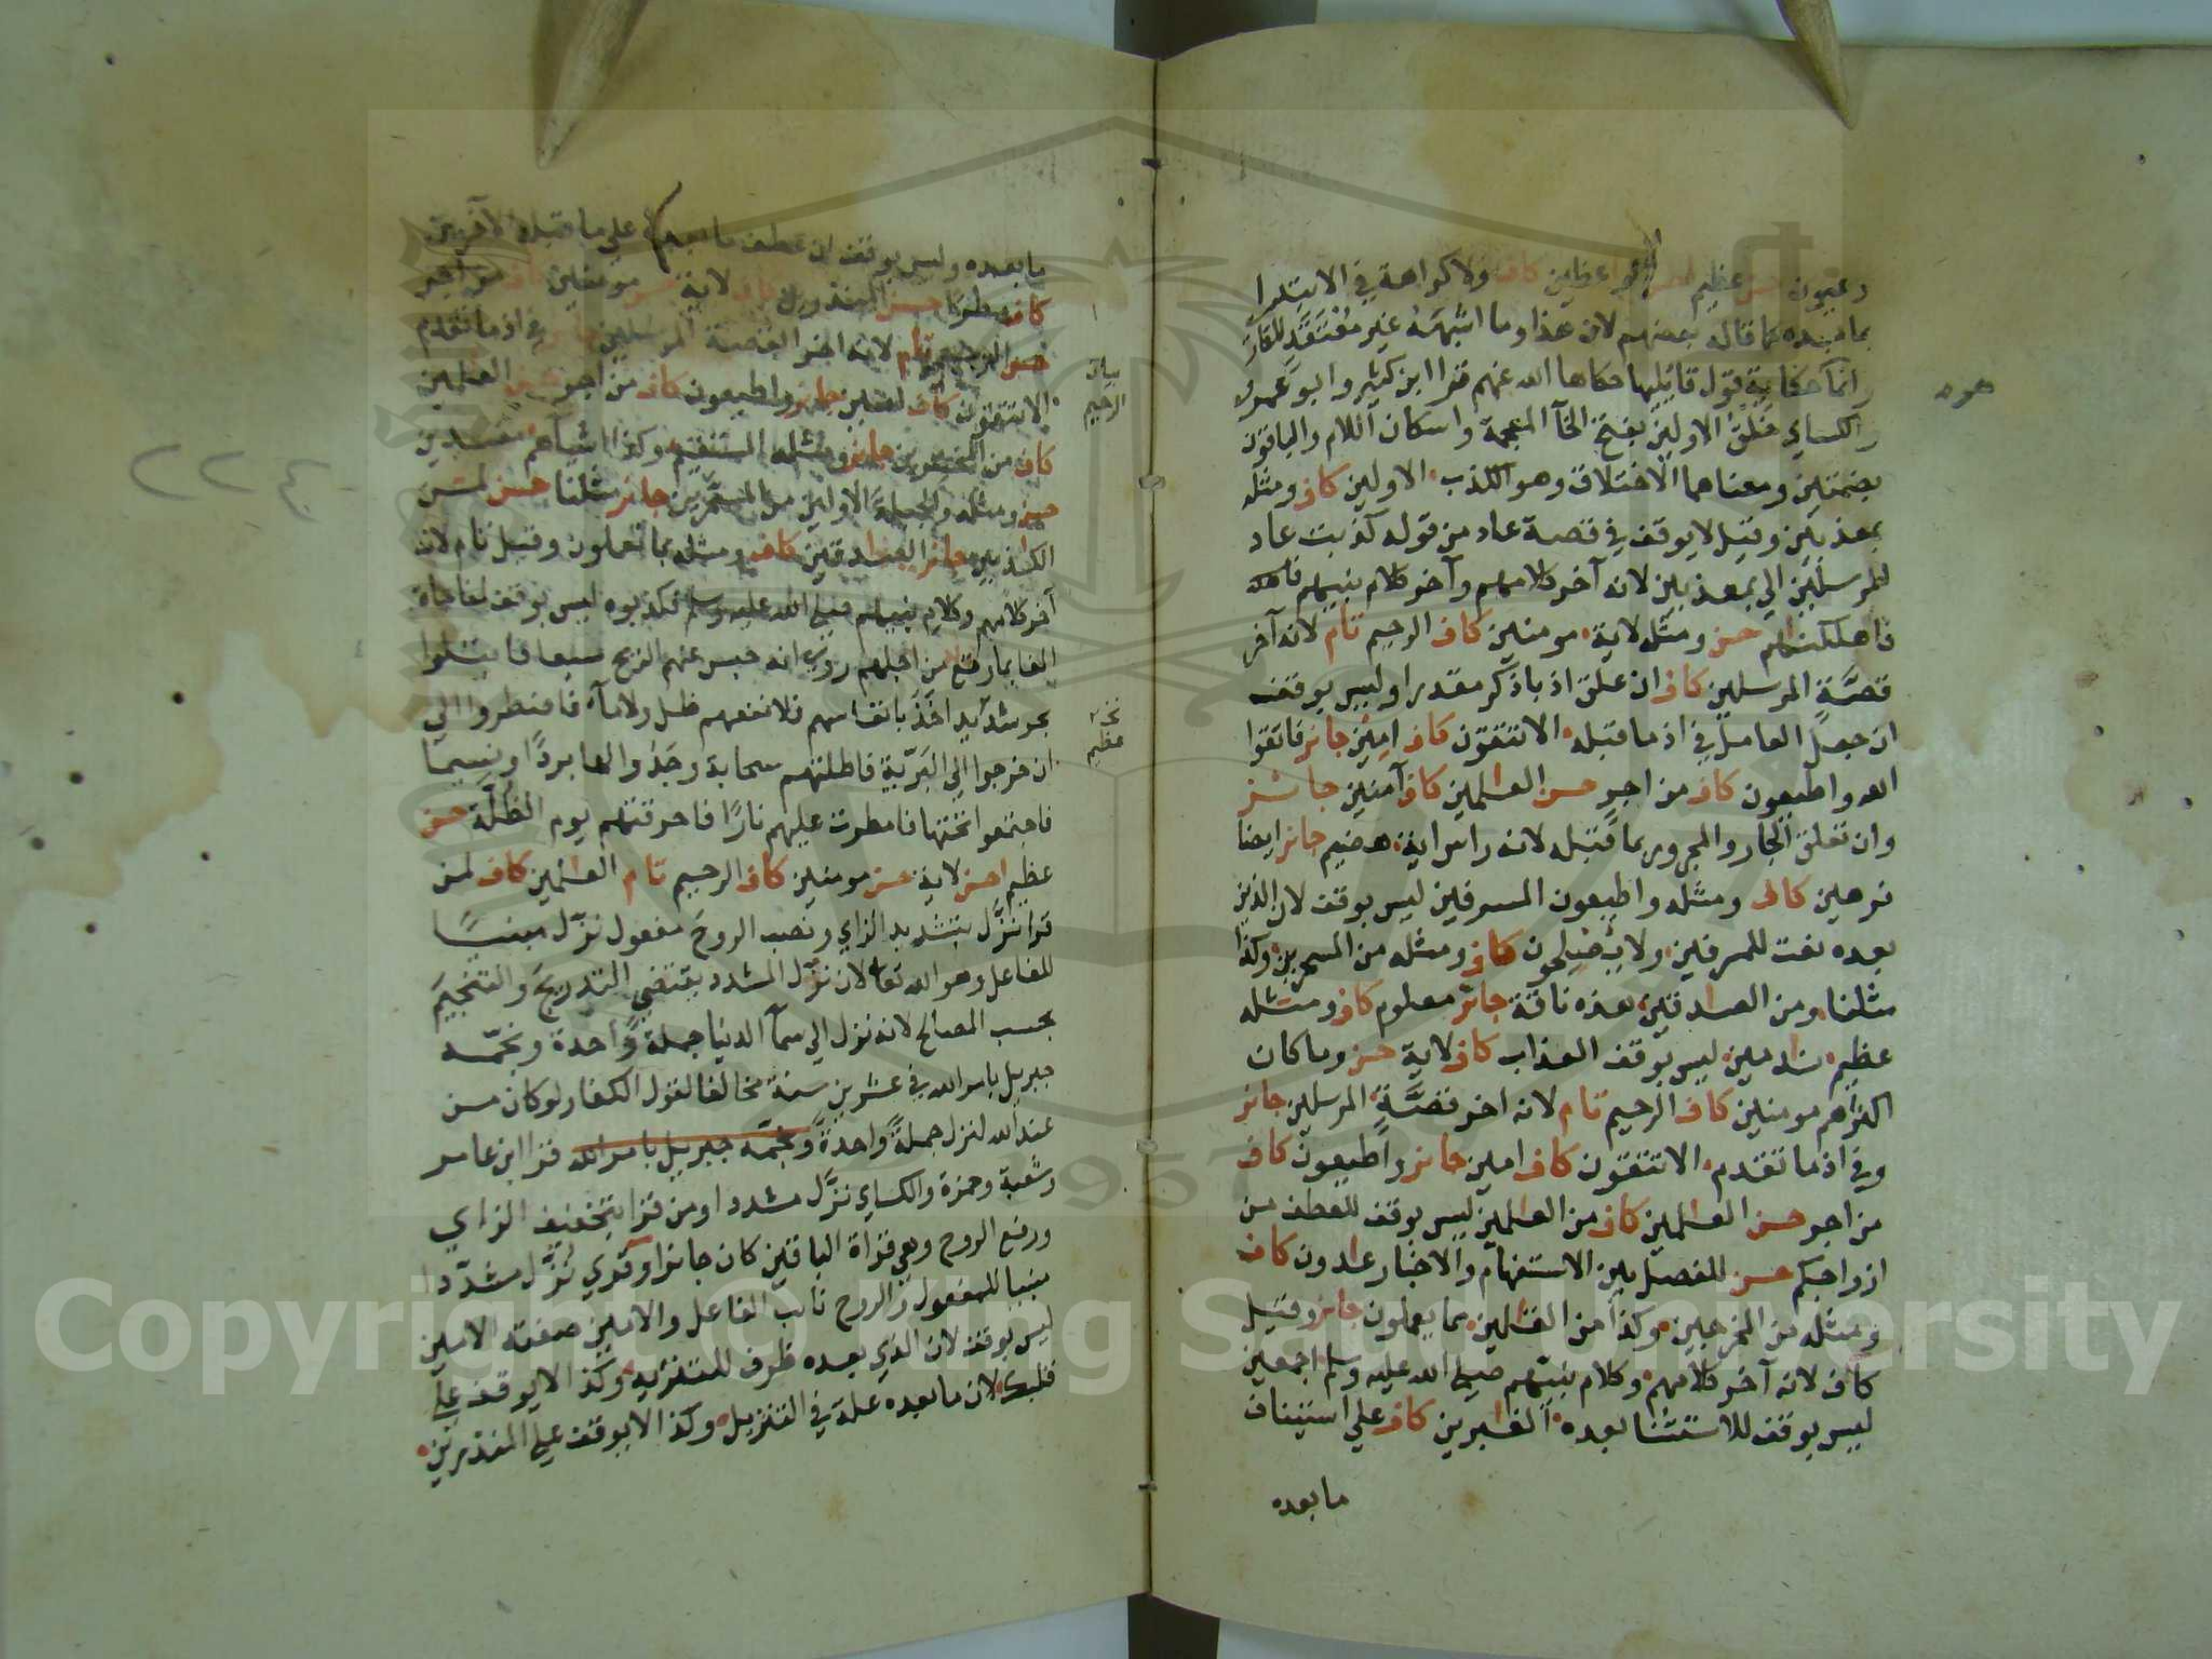 وعيون حسن عظيم الواعظين كاف ولا كراهة في الابتداء
بما بعده كما قاله بعضهم لان هذا وما اشبهه غير معتقد للقار
وانما حكاية قول قائلها حكاها الله عنهم قرا ابن كثير وابو عمرو
والكساي خلق الاولين بفتح الخآ المعجمة واسكان اللام والباقون
بضمتين ومعناهما الاختلاق وهو الكذب الاولين كاف ومثله
بمعذبين وقيل لا يوقف في قصة عاد من قوله كذبت عاد
المرسلين الي بمعذبين لانه آخر كلامهم وآخر كلام نبيهم
فاهلكنهم حسن ومثله لاية مومنين كاف الرحيم تام لانه آخر
قصة المرسلين كاف ان علق اذ باذكر مقدرا وليس بوقف
ان جعل العامل في اذ ما قبله الا تتقون كاف امين جائز فاتقوا
الله واطيعون كاف من اجر حسن العلمين كاف آمنين جائز
وان تعلق الجار والمجرور بما قبله لانه راس اية هضيم جائز ايضا
فرهين كاف ومثله واطيعون المسرفين ليس بوقف لان الذين
بعده نعت للمسرفين ولا يصلحون كاف ومثله من المسحرين وكذا
مثلنا ومن الصدقين هذه ناقة جائز معلوم كاف ومثله
عظيم ندمين ليس بوقف العذاب كاف لاية حسن وما كان
اكثرهم مومنين كاف الرحيم تام لانه اخر قصة المرسلين جائز
وفي اذ ما تقدم الا تتقون كاف امين جائز واطيعون كاف
من اجر حسن العلمين كاف من العلمين ليس بوقف للعطف من
ازواجكم حسن للفصل بين الاستفهام والاخبار عادون كاف
ومثله من المخرجين وكذا من القالين مما يعملون جائز وقيل
كاف لانه آخر كلامهم وكلام نبيهم صلي الله عليه وسلم اجمعين
ليس بوقف للاستثنا بعده الغبرين كاف علي استيناف
ما بعده
ما بعده وليس بوقف ان عطف ما بعده علي ما قبله الآخرين
كاف مطرا حسن المنذرين كاف لاية حسن مومنين كاف من اجر
الرحيم تام لانه اخر القصة المرسلين في اذ ما تقدم
الا تتقون كاف امين جائز واطيعون كاف من اجر حسن العلمين
كاف من المخسرين جائز ومثله المستقيم وكذا اشياءهم مفسدين
حسن ومثله والجبلة الاولين من المسحرين جائز مثلنا حسن لمن
الكذبين جائز الصدقين كاف ومثله بما تعملون وقيل تام لانه
آخر كلامهم وكلام نبيهم صلي الله عليه وسلم فكذبوه ليس بوقف لمفاجاة
الفا بما وقع من اجلهم روي انه حبس عنهم الريح سبعا فابتلوا
بحر شديد اخذ بانفاسهم فلا نفعهم ظل ولا مآء فاضطروا الي
ان خرجوا الي البرية فاظلتهم سحابة وجدوا لها بردا ونسيما
فاجتمعوا تحتها فامطرت عليهم نارا فاحرقتهم يوم الظلة حسن
عظيم احسن لاية حسن مومنين كاف الرحيم تام العلمين كاف لمن
قرا نزل بتشديد الزاي ونصب الروح مفعول نزل مبنيا
للفاعل وهو الله تعا لان نزل المشدد يقتضي التدريج والتنجيم
بحسب المصالح لانه نزل الي سمآ الدنيا جملة واحدة ونجمه
جبريل بامر الله في عشرين سنة مخالفا لقول الكفار لو كان من
عند الله لنزل جملة واحدة ونجمه جبريل بامر الله قرا ابن عامر
وشعبة وحمزة والكساي نزل مشددا ومن قرا بتخفيف الزاي
ورفع الروح وهي قراة الباقين كان جائزا وقري نزل مشددا
مبنيا للمفعول والروح نائب الفاعل والامين صفته الامين
ليس بوقف لان الذي بعده ظرف للتنزيل وكذا لا يوقف علي
قلبك لان ما بعده علة في التنزيل وكذا لا يوقف علي المنذرين
هود
بيان
الرحيم
عظيم
٢٢٤
Copyright © King Saud University
1957